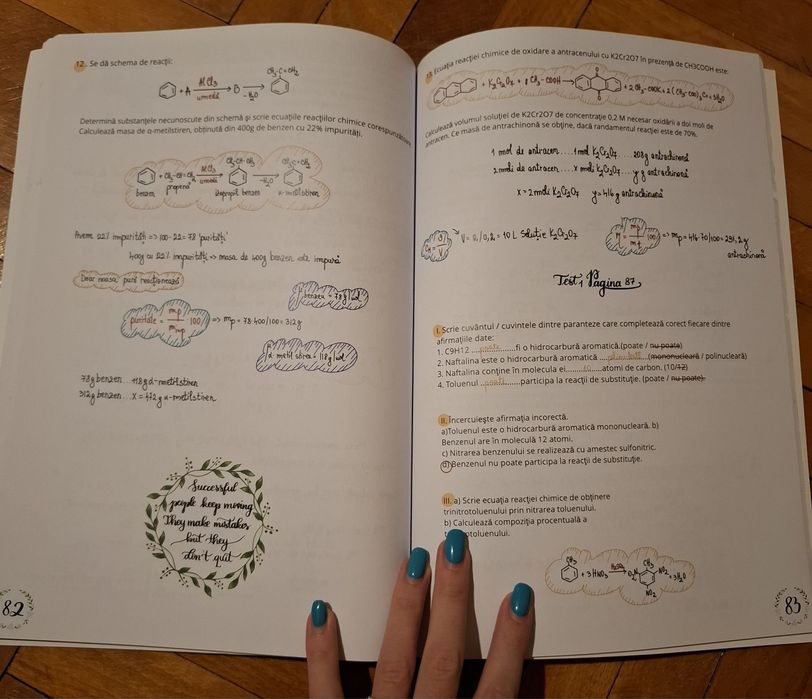 12. Se dă schema de reacții:
+ A AlCl3 umedă B -H2O CH3-C=CH2
Determină substanțele necunoscute din schemă și scrie ecuațiile reacțiilor chimice
Calculează masa de α-metilstiren, obținută din 400g de benzen cu 22% impurități.
+ CH3-CH=CH2 AlCl3 umedă CH3-CH-CH3 -H2O CH3-C=CH2
benzen propenă izopropil benzen α-metilstiren
Avem 22% impurități => 100-22=78 "purități"
400g cu 22% impurități => masa de 400g benzen este impură
Doar masa pură reacționează
benzen = 78g/mol
puritate = mp/mimp · 100 => mp = 78·400/100 = 312g
α-metilstiren = 118g/mol
78g benzen ... 118g α-metilstiren
312g benzen ... x = 472g α-metilstiren
Successful
people keep moving
They make mistakes
but they
don't quit
82
13. Ecuația reacției chimice de oxidare a antracenului cu K2Cr2O7 în prezență de CH3COOH este:
+ K2Cr2O7 + 8 CH3-COOH → + 2 CH3-COOK + 2 (CH3-COO)3Cr + 5H2O
Calculează volumul soluției de K2Cr2O7 de concentrație 0,2 M necesar oxidării a doi moli de
antracen. Ce masă de antrachinonă se obține, dacă randamentul reacției este de 70%.
1 mol de antracen ... 1 mol K2Cr2O7 ... 208g antrachinonă
2 moli de antracen ... x moli K2Cr2O7 ... y g antrachinonă
x = 2 moli K2Cr2O7 y = 416g antrachinonă
V = 2/0,2 = 10 L soluție K2Cr2O7
=> mp = 416·70/100 = 291,2g
antrachinonă
Test 1 Pagina 87
I. Scrie cuvântul / cuvintele dintre paranteze care completează corect fiecare dintre
afirmațiile date:
1. C9H12 ....poate.....fi o hidrocarbură aromatică.(poate / nu poate)
2. Naftalina este o hidrocarbură aromatică ....polinucleară.... (mononucleară / polinucleară)
3. Naftalina conține în molecula ei......10......atomi de carbon. (10/12)
4. Toluenul ....poate.......participa la reacții de substituție. (poate / nu poate).
II. Încercuiește afirmația incorectă.
a)Toluenul este o hidrocarbură aromatică mononucleară. b)
Benzenul are în moleculă 12 atomi.
c) Nitrarea benzenului se realizează cu amestec sulfonitric.
d) Benzenul nu poate participa la reacții de substituție.
III. a) Scrie ecuația reacției chimice de obținere
trinitrotoluenului prin nitrarea toluenului.
b) Calculează compoziția procentuală a
CH3 + 3 HNO3 H2SO4 O2N CH3 NO2 NO2 + 3H2O
83